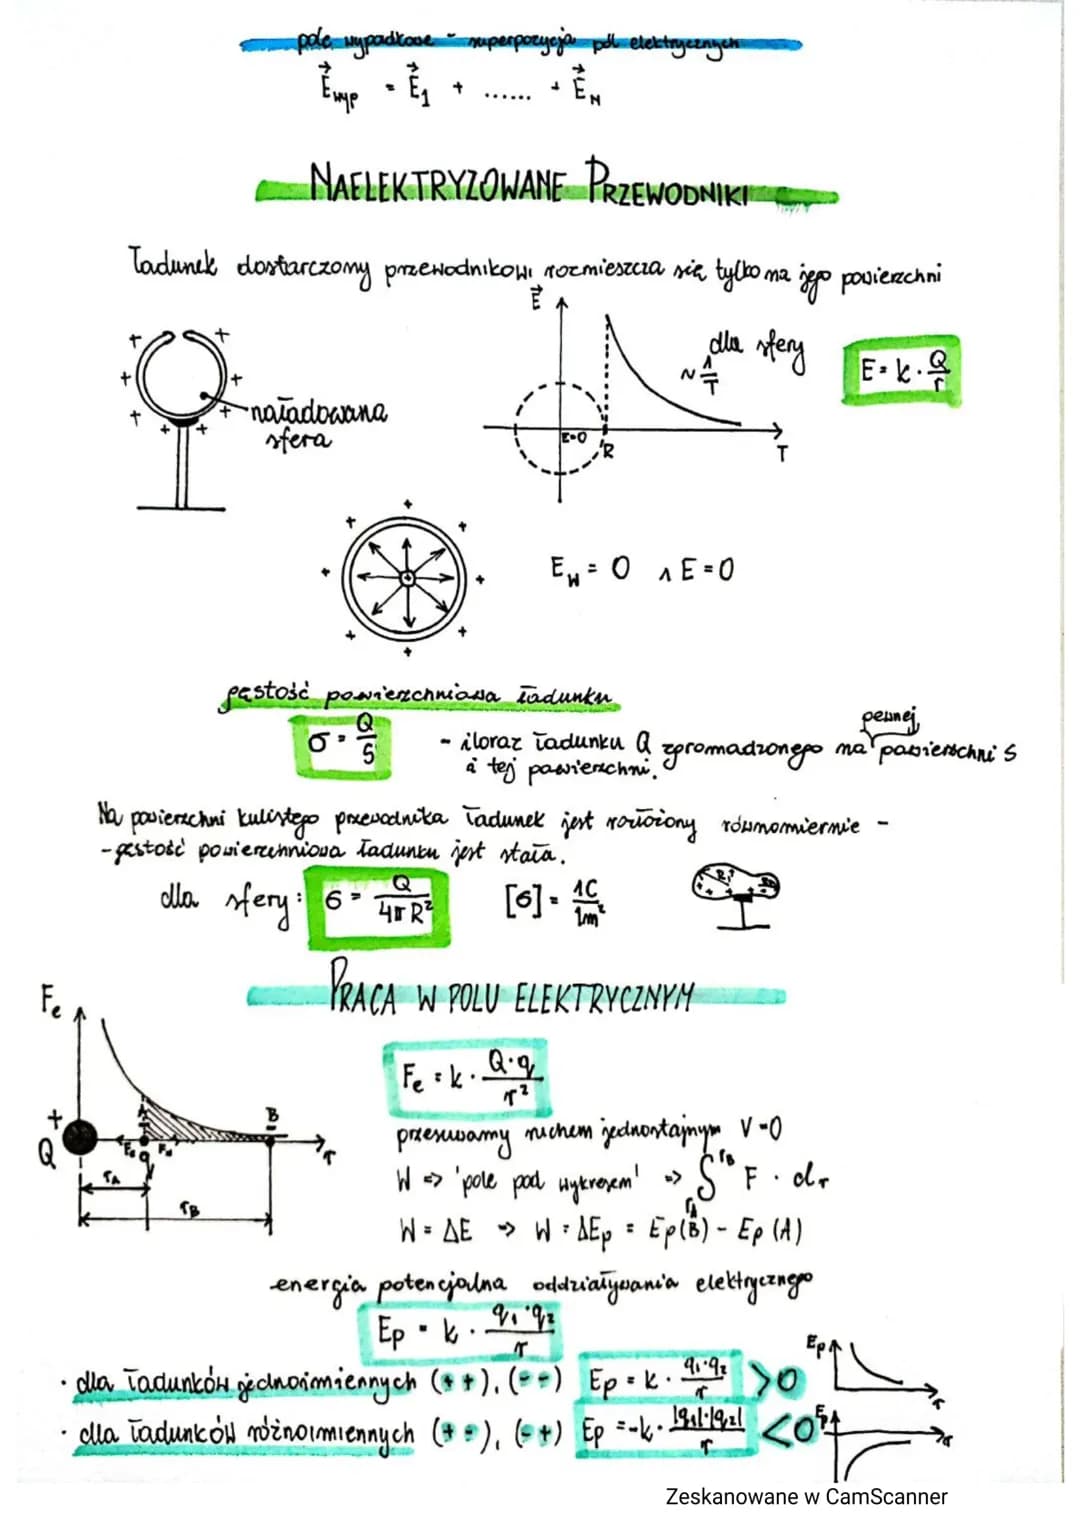 pole wypadkowe - superpozycja pól elektrycznych
E⃗wyp = E⃗1 + ...... + E⃗N
NAELEKTRYZOWANE PRZEWODNIKI
Ładunek dostarczony przewodnikowi rozmieszcza się tylko na jego powierzchni
E⃗
dla sfery
~ 1/r
E = k · Q/r
naładowana
sfera
E=0
R
r
Ew = 0 ∧ E = 0
gęstość powierzchniowa ładunku
σ = Q/S
- iloraz ładunku Q zgromadzonego na pewnej powierzchni S
a tej powierzchni.
Na powierzchni kulistego przewodnika ładunek jest rozłożony równomiernie -
- gęstość powierzchniowa ładunku jest stała.
dla sfery: σ = Q/4πR² [σ] = 1C/1m²
PRACA W POLU ELEKTRYCZNYM
Fe
Fe = k · Q·q/r²
+
Q
A
B
q
r
rA
rB
przesuwamy ruchem jednostajnym V=0
W => 'pole pod wykresem' => ∫rA rB F · dr
W = ΔE => W = ΔEp = Ep(B) - Ep(A)
energia potencjalna oddziaływania elektrycznego
Ep = k · q1·q2/r
· dla ładunków jednoimiennych (++), (--) Ep = k · q1·q2/r >0
Ep
r
· dla ładunków różnoimiennych (+-), (-+) Ep = -k · |q1|·|q2|/r <0
Ep
r
Zeskanowane w CamScanner